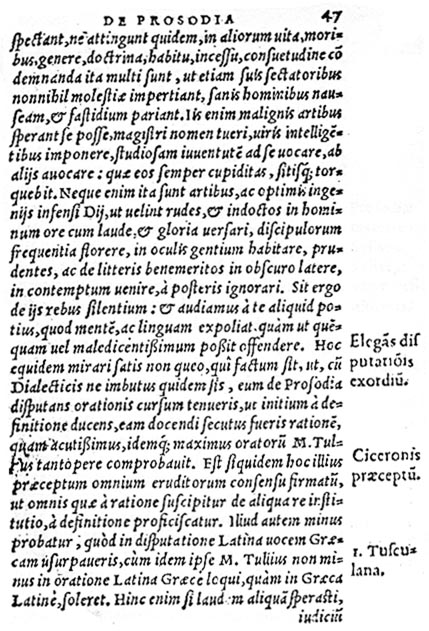 DE PROSODIA 47
spectant, ne attingunt quidem, in aliorum uita, mori-
bus, genere, doctrina, habitu, incessu, consuetudine cō
demnanda ita multi sunt, ut etiam suis sectatoribus
nonnihil molestiæ impertiant, sanis hominibus nau-
seam, & fastidium pariant. Iis enim malignis artibus
sperant se posse, magistri nomen tueri, uiris intelligē-
tibus imponere, studiosam iuuentutē ad se uocare, ab
alijs auocare: quæ eos semper cupiditas, sitisq; tor-
quebit. Neque enim ita sunt artibus, ac optimis inge-
nijs infensi Dij, ut uelint rudes, & indoctos in homi-
num ore cum laude, & gloria uersari, discipulorum
frequentia florere, in oculis gentium habitare, pru-
dentes, ac de litteris benemeritos in obscuro latere,
in contemptum uenire, à posteris ignorari. Sit ergo
de ijs rebus silentium: & audiamus à te aliquid po-
tius, quod mentē, ac linguam expoliat. quàm ut quē-
quam uel maledicentißimum poßit offendere. Hoc
equidem mirari satis non queo, quî factum sit, ut, cũ
Dialecticis ne imbutus quidem sis, eum de Prosodia
disputans orationis cursum tenueris, ut initium à de-
finitione ducens, eam docendi secutus fueris rationē,
quam acutißimus, idemq; maximus oratorũ M. Tul-
lius tantopere comprobauit. Est siquidem hoc illius
præceptum omnium eruditorum consensu firmatũ,
ut omnis quæ à ratione suscipitur de aliqua re insti-
tutio, à definitione proficiscatur. Illud autem minus
probatur, quòd in disputatione Latina uocem Græ-
cam usurpaueris, cùm idem ipse M. Tullius non mi-
nus in oratione Latina Græcè loqui, quàm in Græca
Latinè, soleret. Hinc enim si laudem aliquā sperasti,
iudiciũ
Elegãs dis
putatiõis
exordiũ.
Ciceronis
præceptũ.
1. Tuscu-
lana.